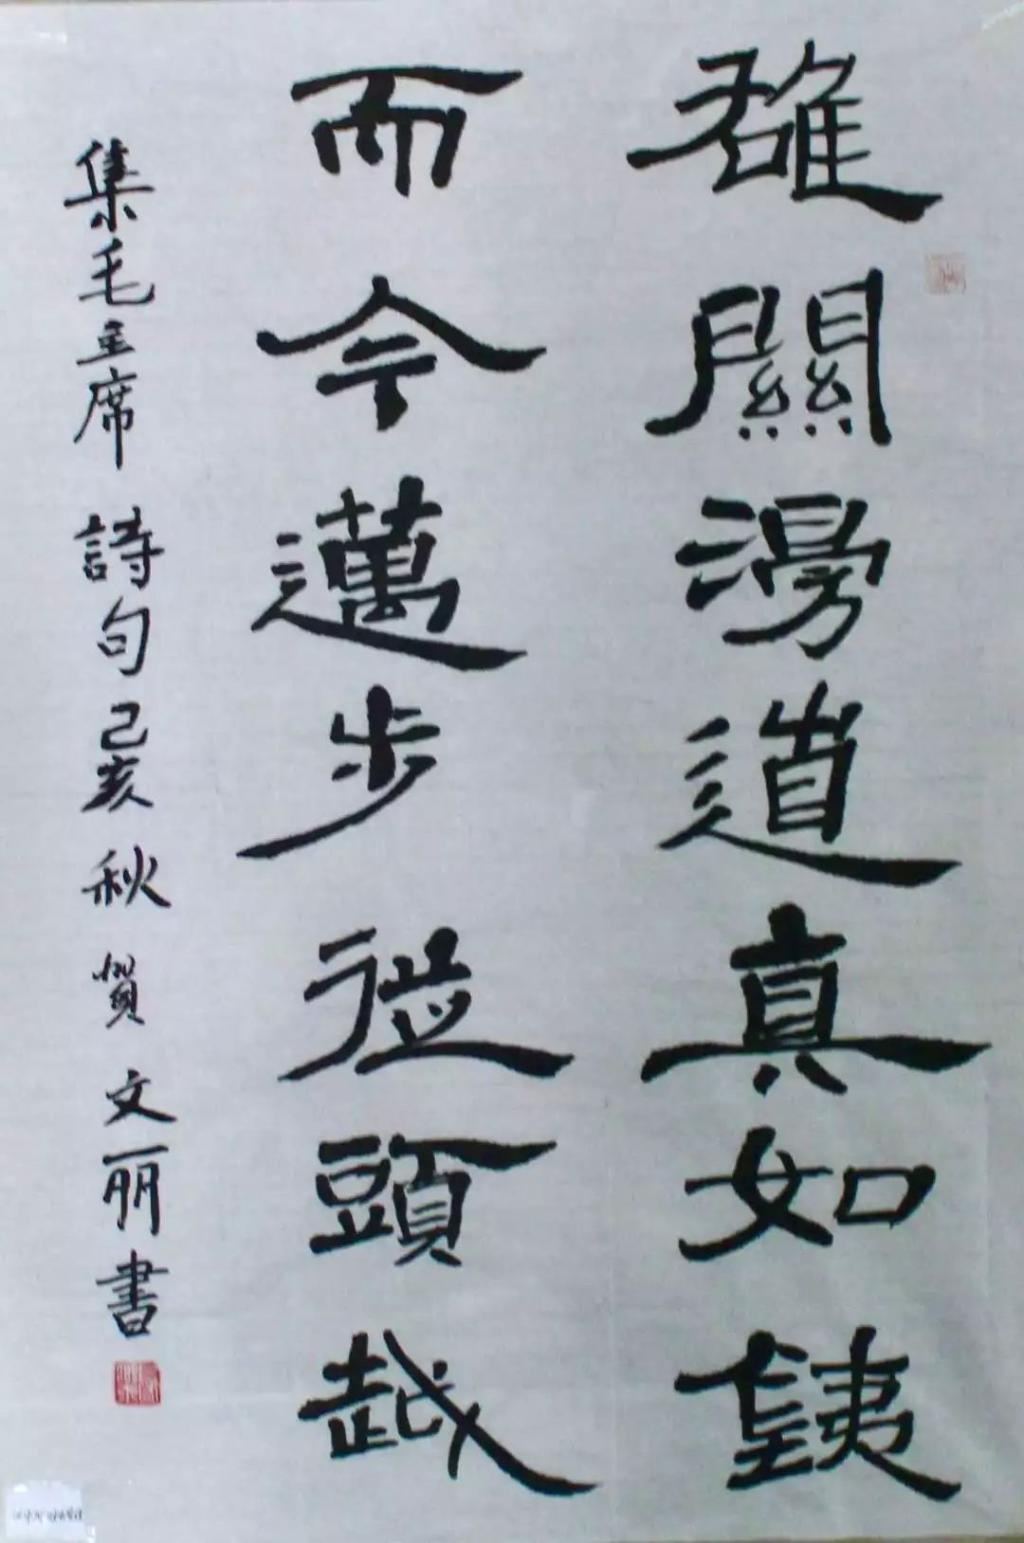 雄關漫道真如鐵
而今邁步從頭越
集毛主席詩句己亥秋賀文丽書